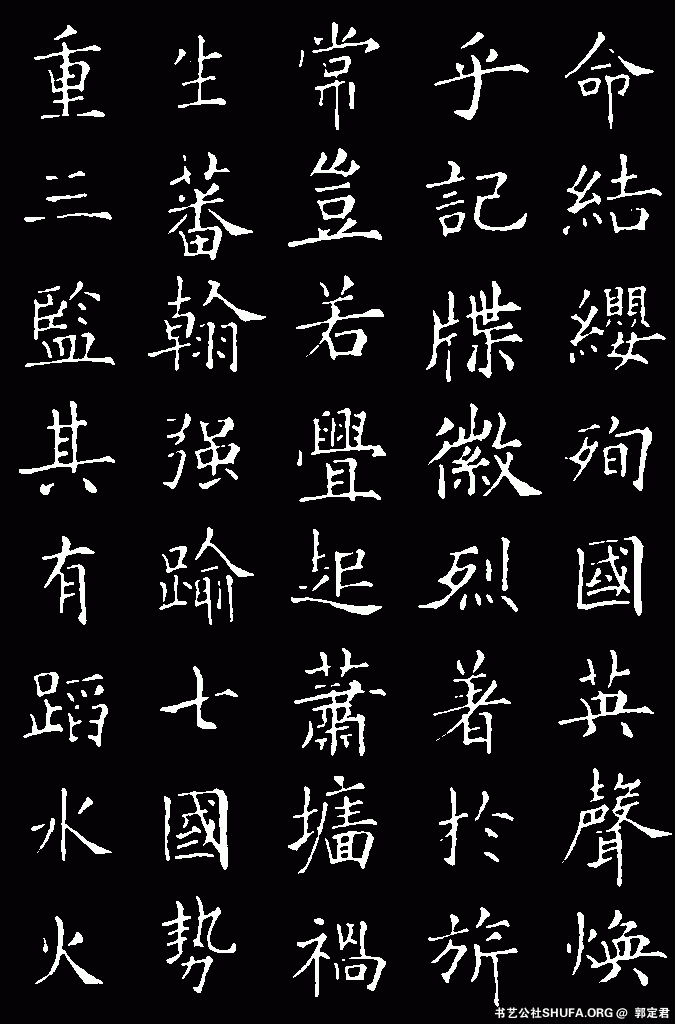 命結纓殉國英聲煥
乎記牒徽烈著於旂
常豈若舋起蕭墻禍
生蕃翰强踰七國勢
重三監其有蹈水火
书艺公社SHUFA.ORG @ 郭定君